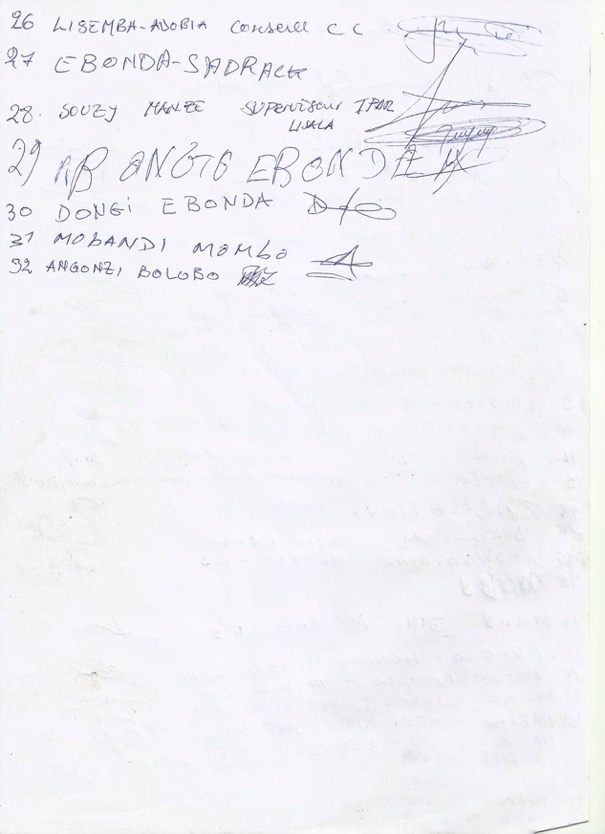 26 LISEMBA-ADOBIA Conseill C C
27 EBONDA-SADRACK
28. SOUZY MANZE SUPERVISEUR IPAR
LISALA
29 EBONDA
30 DONGI EBONDA
31 MOBANDI MOMBO
32 ANGONZI BOLOBO